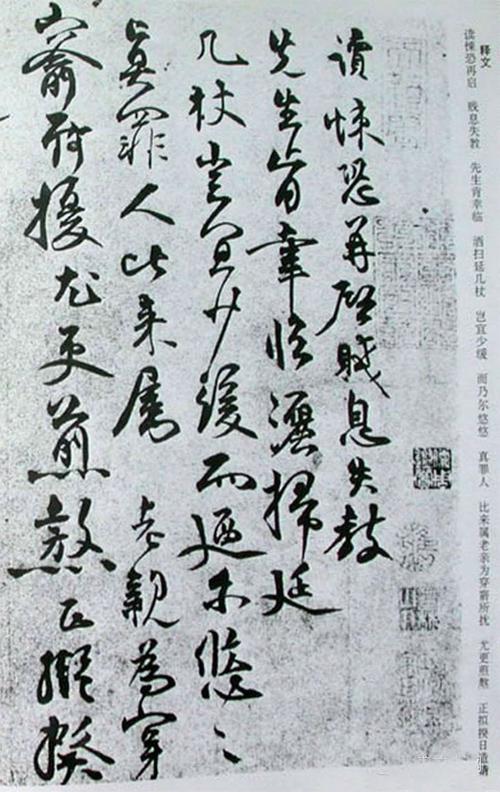 释文
读悚恐再启 贱息失教 先生肯幸临 洒扫延几杖 岂宜少缓 而乃尔悠悠 真罪人 比来属老亲为穿窬所扰 尤更煎熬 正拟揆日造请
讀悚恐再啓賤息失教
先生肯幸临灑掃延
几杖豈宜少緩而迺尔悠々
真罪人比来属 老親為穿
窬所擾尤更煎熬正擬揆